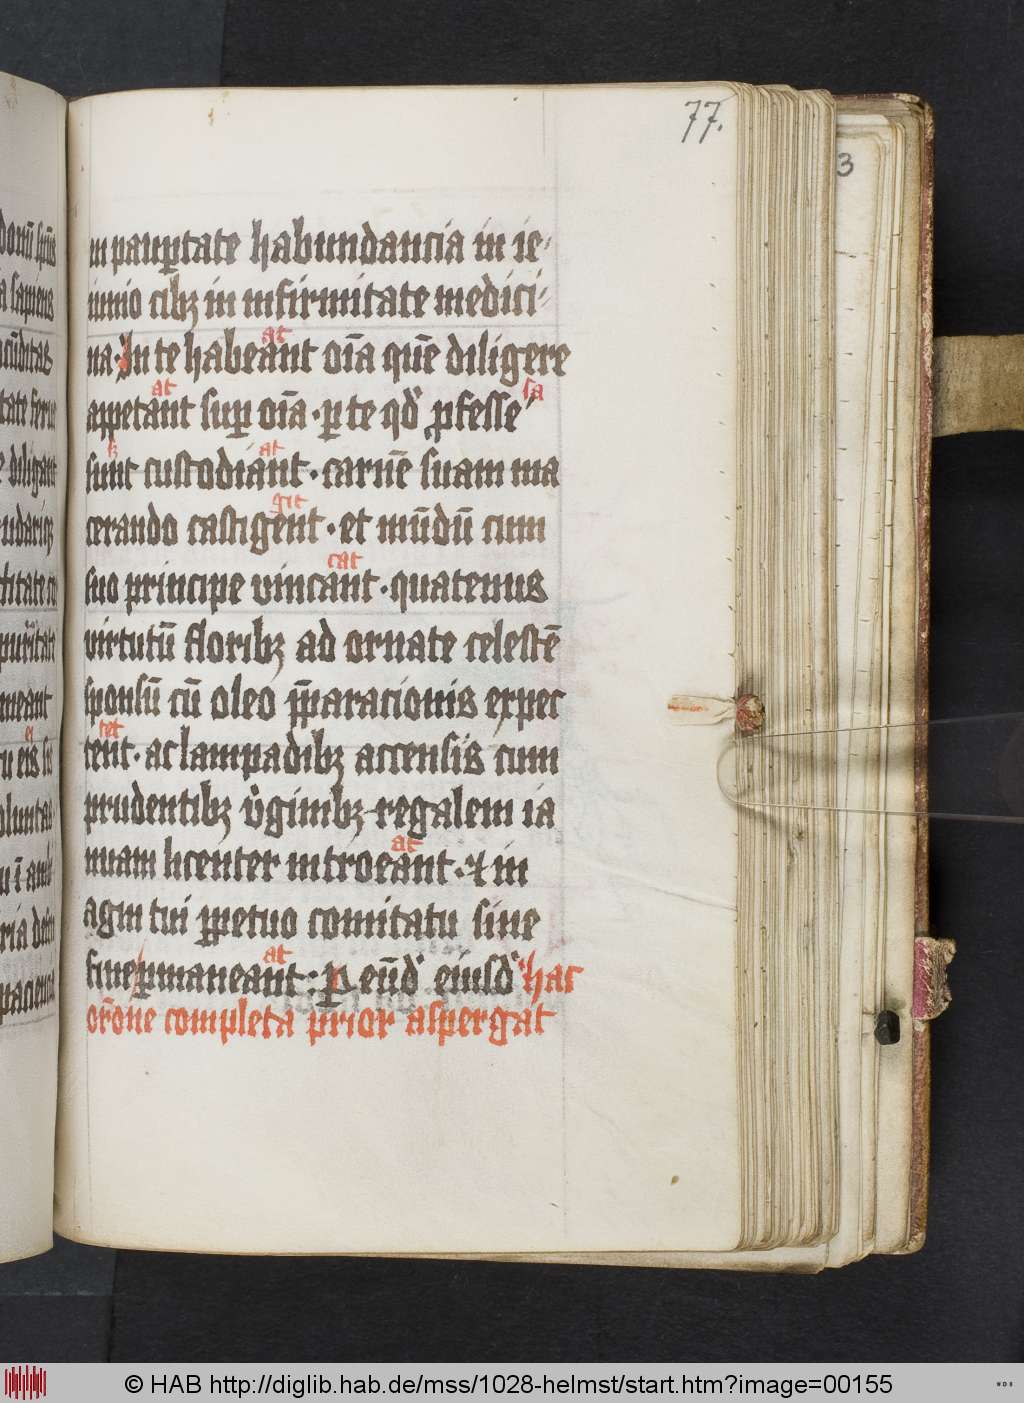 77.
3
in paup̲tate habundancia in ie-
iunio cibꝫ in infirmitate medici-
at
na· In te habeant oı̄a quē diligere
at sa
appetant suꝑ oı̄a · ꝑ te qd' ꝓfesse
ꝫ at
sunt custodiant · carnē suam ma
git
cerando castigent · et mūdū cum
cat
suo principe vincant · quatenus
virtutū floribꝫ ad ornate celestē
sponsū cū oleo p̄paracionis expec
tet
tent · ac lampadibꝫ accensis cum
prudentibꝫ v̓ginibꝫ regalem ia
at
nuam licenter introeant · ⁊ in
agni tui ꝑpetuo comitatu sine
at
fine ꝑmaneant : P eūd' eiusd' hac
or̄one completa prior aspergat
© HAB http://diglib.hab.de/mss/1028-helmst/start.htm?image=00155